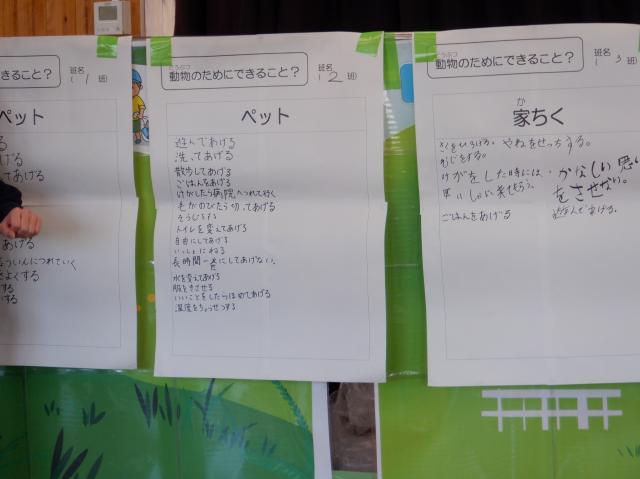 きること?
班名
( 1 班)
ット
る
げる
てあげる
あげる
ょういんにつれていく
よくする
する
いする
どうぶつ
動物のためにできること?
班名
( 2 班)
ペット
遊んであげる
洗ってあげる
散歩してあげる
ごはんをあげる
けがしたら病院へつれて行く
毛がのびたら切ってあげる
そうじする
トイレを変えてあげる
自由にしてあげる
いっしょにねる
長時間一人にしてあげない。
水を変えてあげる
服をきさせる
いいことをしたらほめてあげる
温度をちょうせつする
どうぶつ
動物のためにできること?
班名
( 3 班)
か
家ちく
さくをひろげる。やねをせっちする。
そうじをする。
けがをした時には、かなしい思い
をさせない。
ごはんをあげる
遊んであげる。